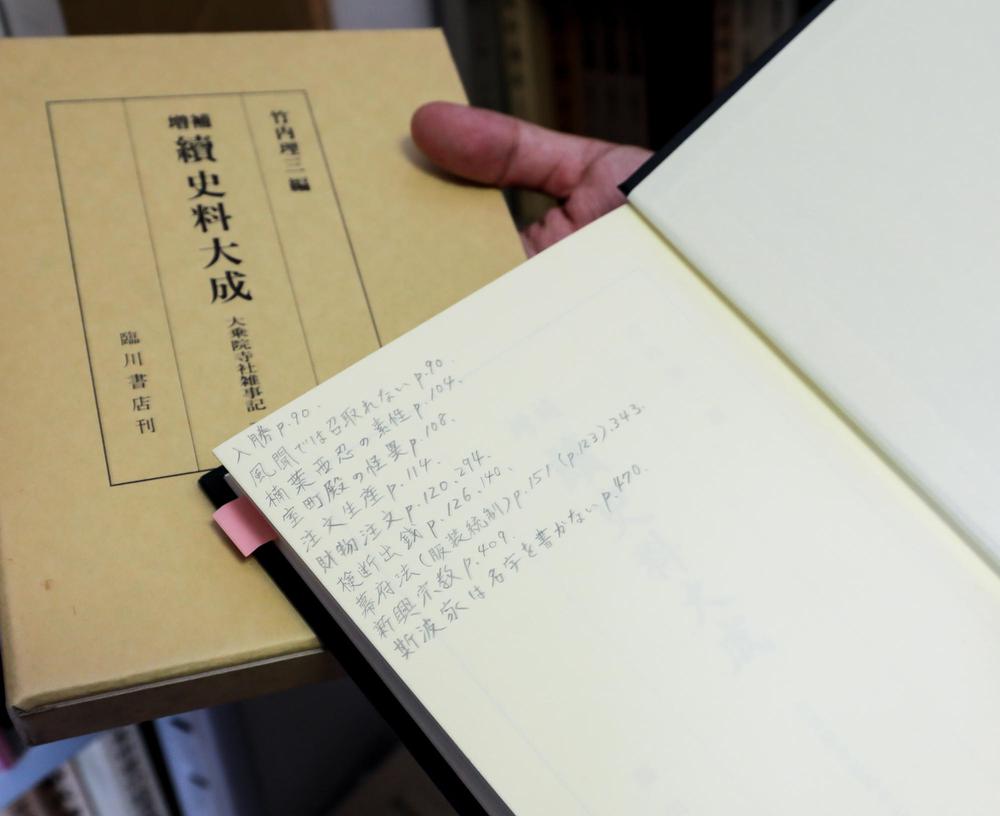 竹内理三編
増補
續史料大成
大乗院寺社雑事記
臨川書店刊
入勝 p.90.
風聞では召取れない p.90.
楠葉西忍の素性 p.104.
室町殿の怪異 p.108.
注文生産 p.114.
財物注文 p.120, 294.
検断出銭 p.126, 140.
幕府法(服装統制) p.151 (p.123), 343.
新興宗教 p.409.
斯波家は名字を書かない p.470.